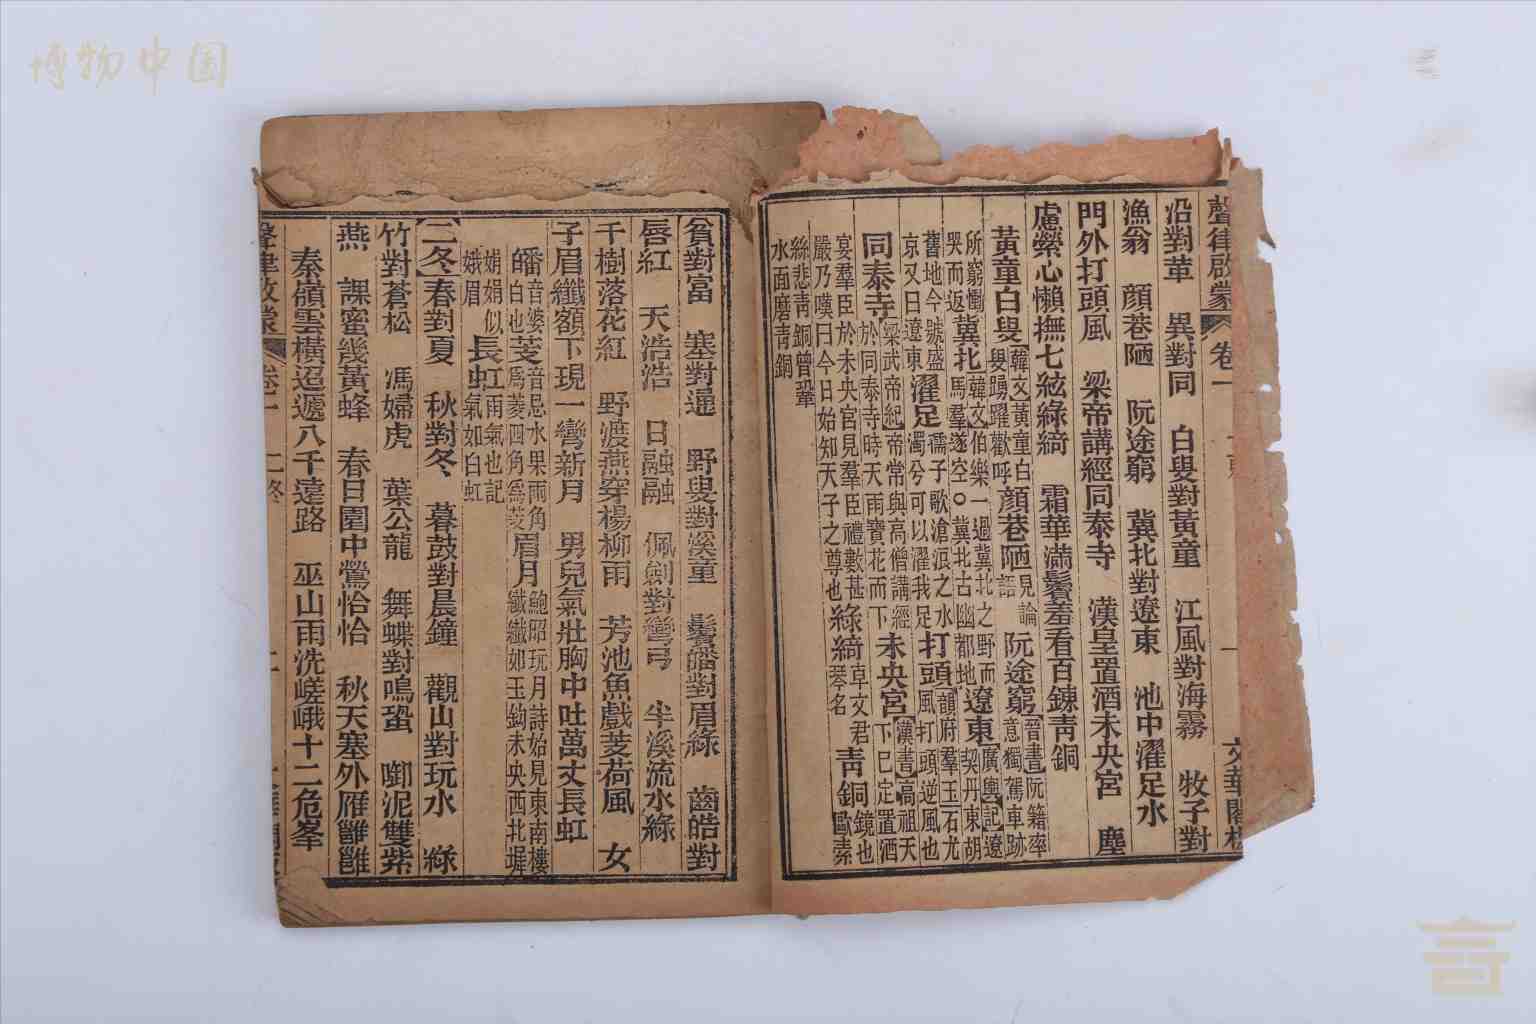 博物中国
聲律啟蒙 卷一 一 文華閣梓
沿對革 異對同 白叟對黃童 江風對海霧 牧子對
漁翁 顏巷陋 阮途窮 冀北對遼東 池中濯足水
門外打頭風 梁帝講經同泰寺 漢皇置酒未央宮 塵
慮縈心懶撫七絃綠綺 霜華滿鬢羞看百鍊青銅
黃童白叟【韓文】黃童白叟踴躍歡呼 顏巷陋 見論語 阮途窮【晉書】阮籍率意獨駕車跡
所窮慟哭而返 冀北 韓文伯樂一過冀北之野而馬羣遂空○冀北古幽都地 遼東【廣輿記】遼契丹東胡
舊地今號盛京又曰遼東 濯足 孺子歌滄浪之水濁兮可以濯我足 打頭【韻府羣玉】石尤風打頭逆風也
同泰寺【梁武帝紀】帝常與高僧講經於同泰寺時天雨寶花而下 未央宮【漢書】高祖天下已定置酒
宴羣臣於未央宮見羣臣禮數甚嚴乃嘆曰今日始知天子之尊也 綠綺 卓文君琴名 青銅 鏡也歐素
絲悲青銅曾鞏水面磨青銅
貧對富 塞對通 野叟對溪童 鬢皤對眉綠 齒皓對
唇紅 天浩浩 日融融 佩劍對彎弓 半溪流水綠
千樹落花紅 野渡燕穿楊柳雨 芳池魚戲芰荷風 女
子眉纖額下現一彎新月 男兒氣壯胸中吐萬丈長虹
皤 音婆白也 芰 音忌水果兩角為菱四角為芰 眉月 鮑昭玩月詩始見東南樓纖纖如玉鉤未央西北墀
娟娟似娥眉 長虹 雨氣也記氣如白虹
【二冬】春對夏 秋對冬 暮鼓對晨鐘 觀山對玩水 綠
竹對蒼松 馮婦虎 葉公龍 舞蝶對鳴蛩 啣泥雙紫
燕 課蜜幾黃蜂 春日園中鶯恰恰 秋天塞外雁雝雝
秦嶺雲橫迢遞八千遠路 巫山雨洗嵯峨十二危峯
聲律啟蒙 卷一 二冬 二